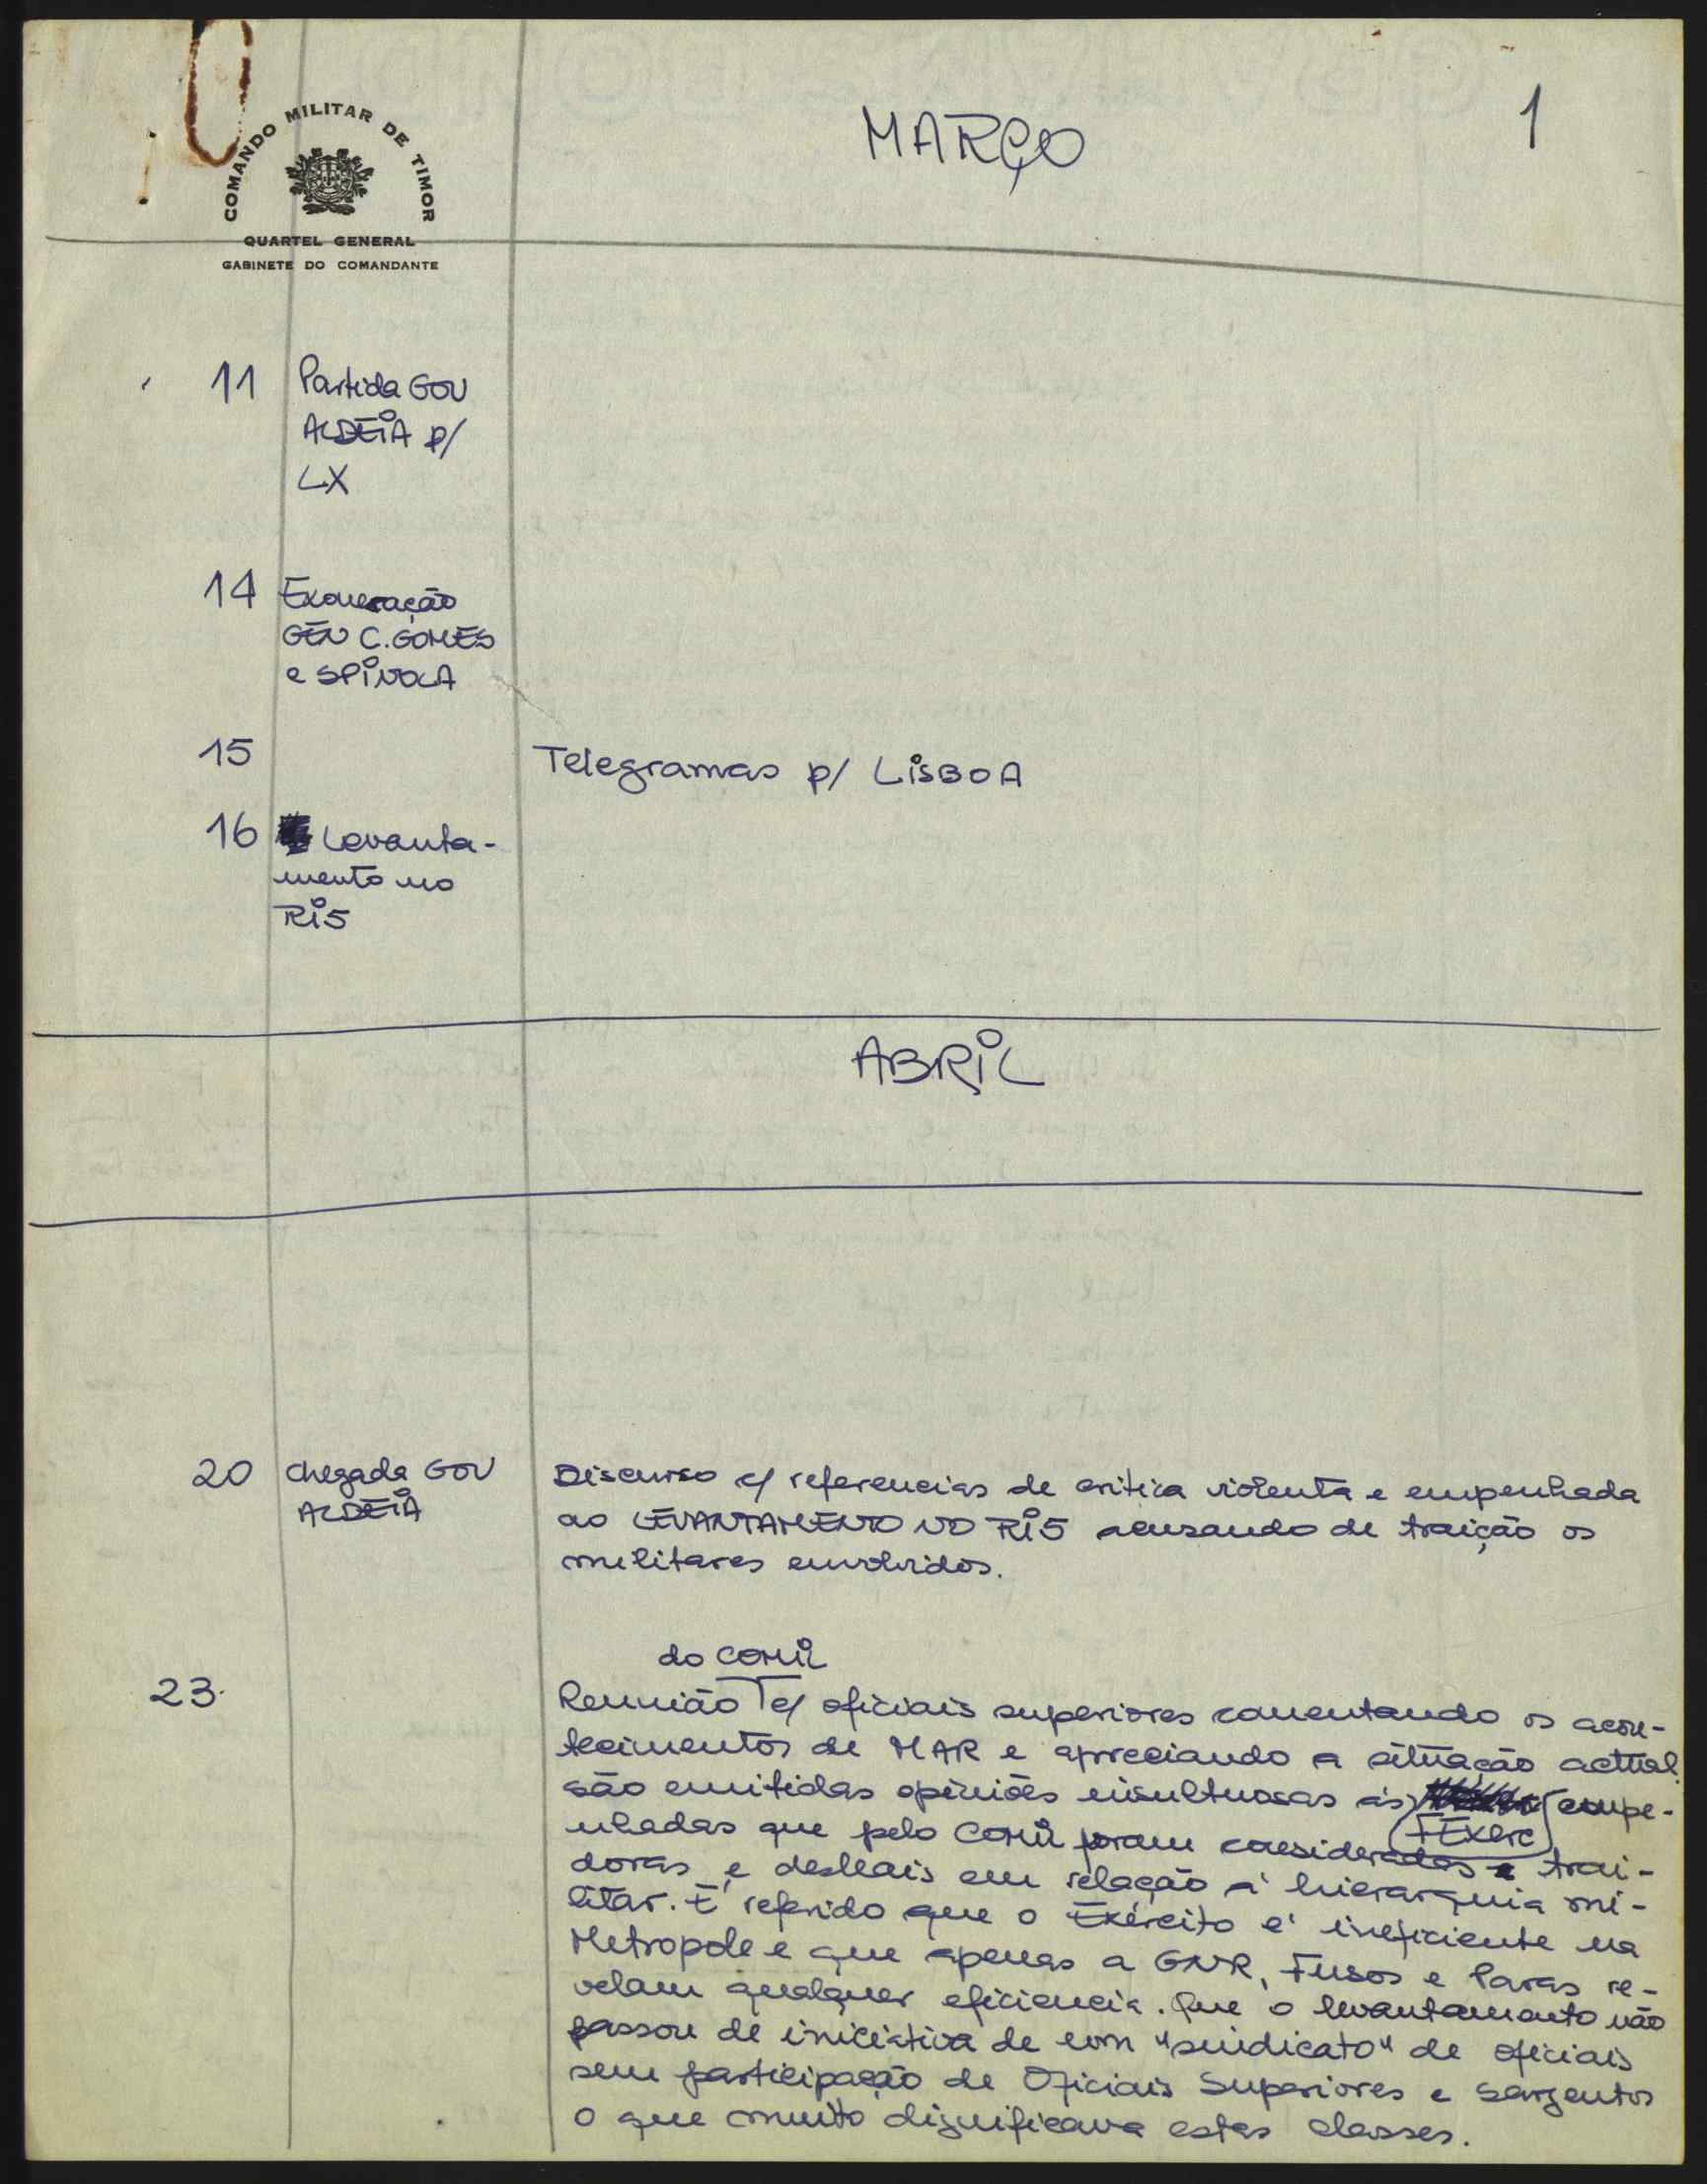 COMANDO MILITAR DE TIMOR
QUARTEL GENERAL
GABINETE DO COMANDANTE
MARÇO
1
11 Partida GOV
ALDEIA p/
LX
14 Exoneração
GEN C. GOMES
e SPINOLA
15 Telegramas p/ LISBOA
16 Levanta-
mento no
RI5
ABRIL
20 chegada GOV
ALDEIA
Discurso c/ referencias de critica violenta e empenhada
ao LEVANTAMENTO NO RI5 acusando de traição os
militares envolvidos.
do COMIL
23. Reunião c/ oficiais superiores comentando os acon-
tecimentos de MAR e apreciando a situação actual.
são emitidas opiniões insultuosas às empe-
FExerc
nhadas que pelo COMIL foram consideradas trai-
doras e desleais em relação à hierarquia mi-
litar. É referido que o Exército é ineficiente na
Metropole e que apenas a GNR, Fusos e Paras re-
velam qualquer eficiencia. Que o levantamento não
passou de iniciativa de um "sindicato" de oficiais
sem participação de Oficiais Superiores e sargentos
o que muito dignificava estas classes.